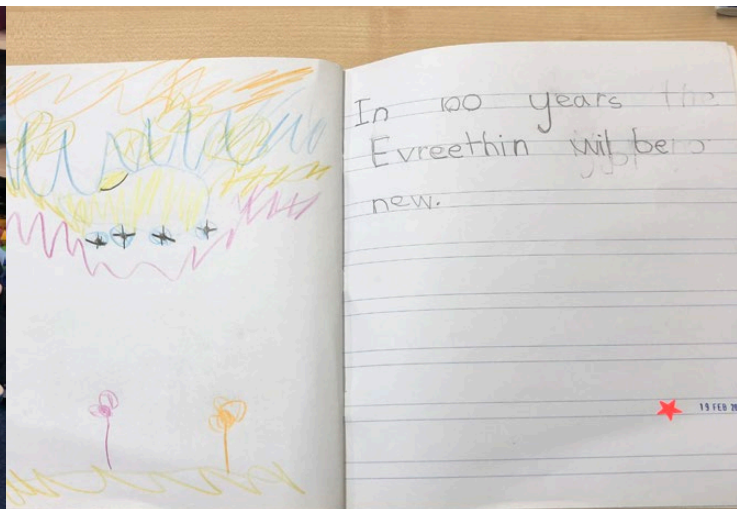 In 100 years the
Evreethin wil be
new.
19 FEB 20